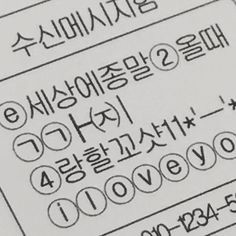 수신메시지함
ⓔ세상에종말②올때
㉠㉠ㅏ㈛ㅣ
④랑할꼬샷11*'―'*
ⓘⓛⓞⓥⓔⓨⓞ
010-1234-5